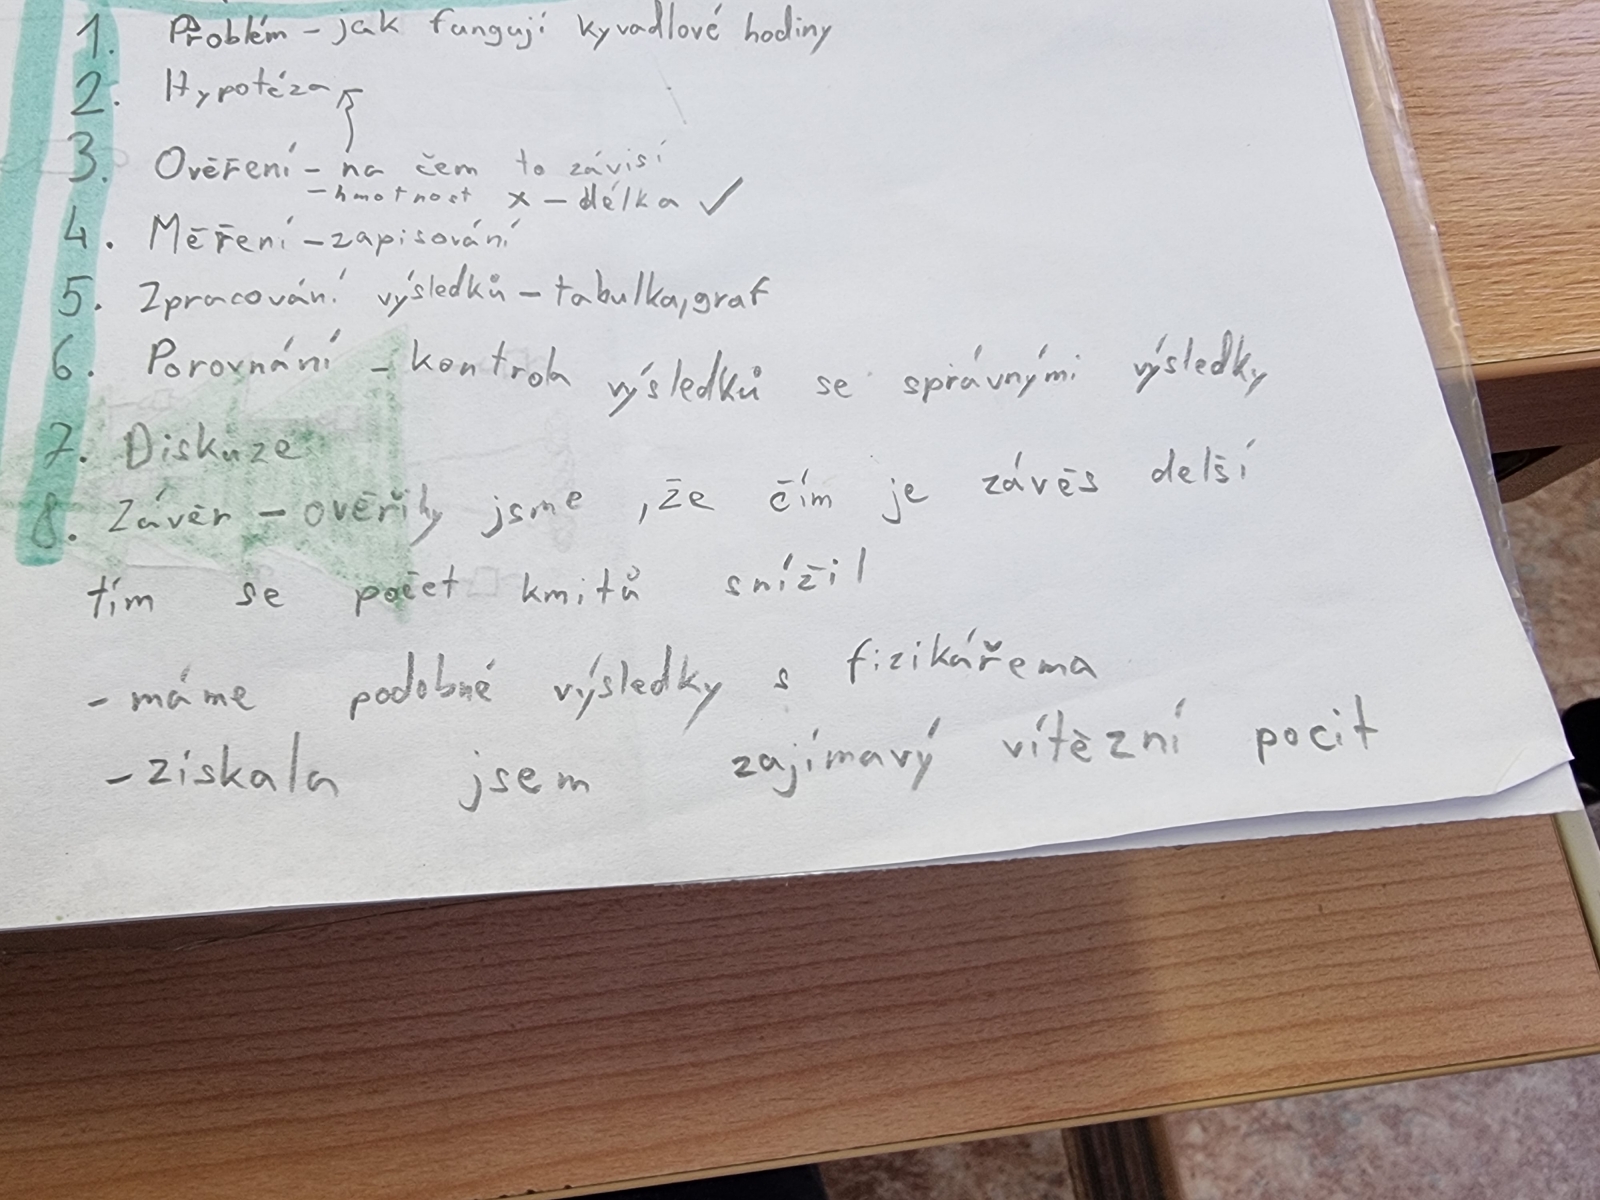 1. Problém - jak fungují kyvadlové hodiny
2. Hypotéza
3. Ověření - na čem to závisí
- hmotnost x - délka ✓
4. Měření - zapisování
5. Zpracování výsledků - tabulka, graf
6. Porovnání - kontrola výsledků se správnými výsledky
7. Diskuze
8. Závěr - ověřily jsme, že čím je závěs delší
tím se počet kmitů snížil
- máme podobné výsledky s fizikářema
- získala jsem zajímavý vítězní pocit